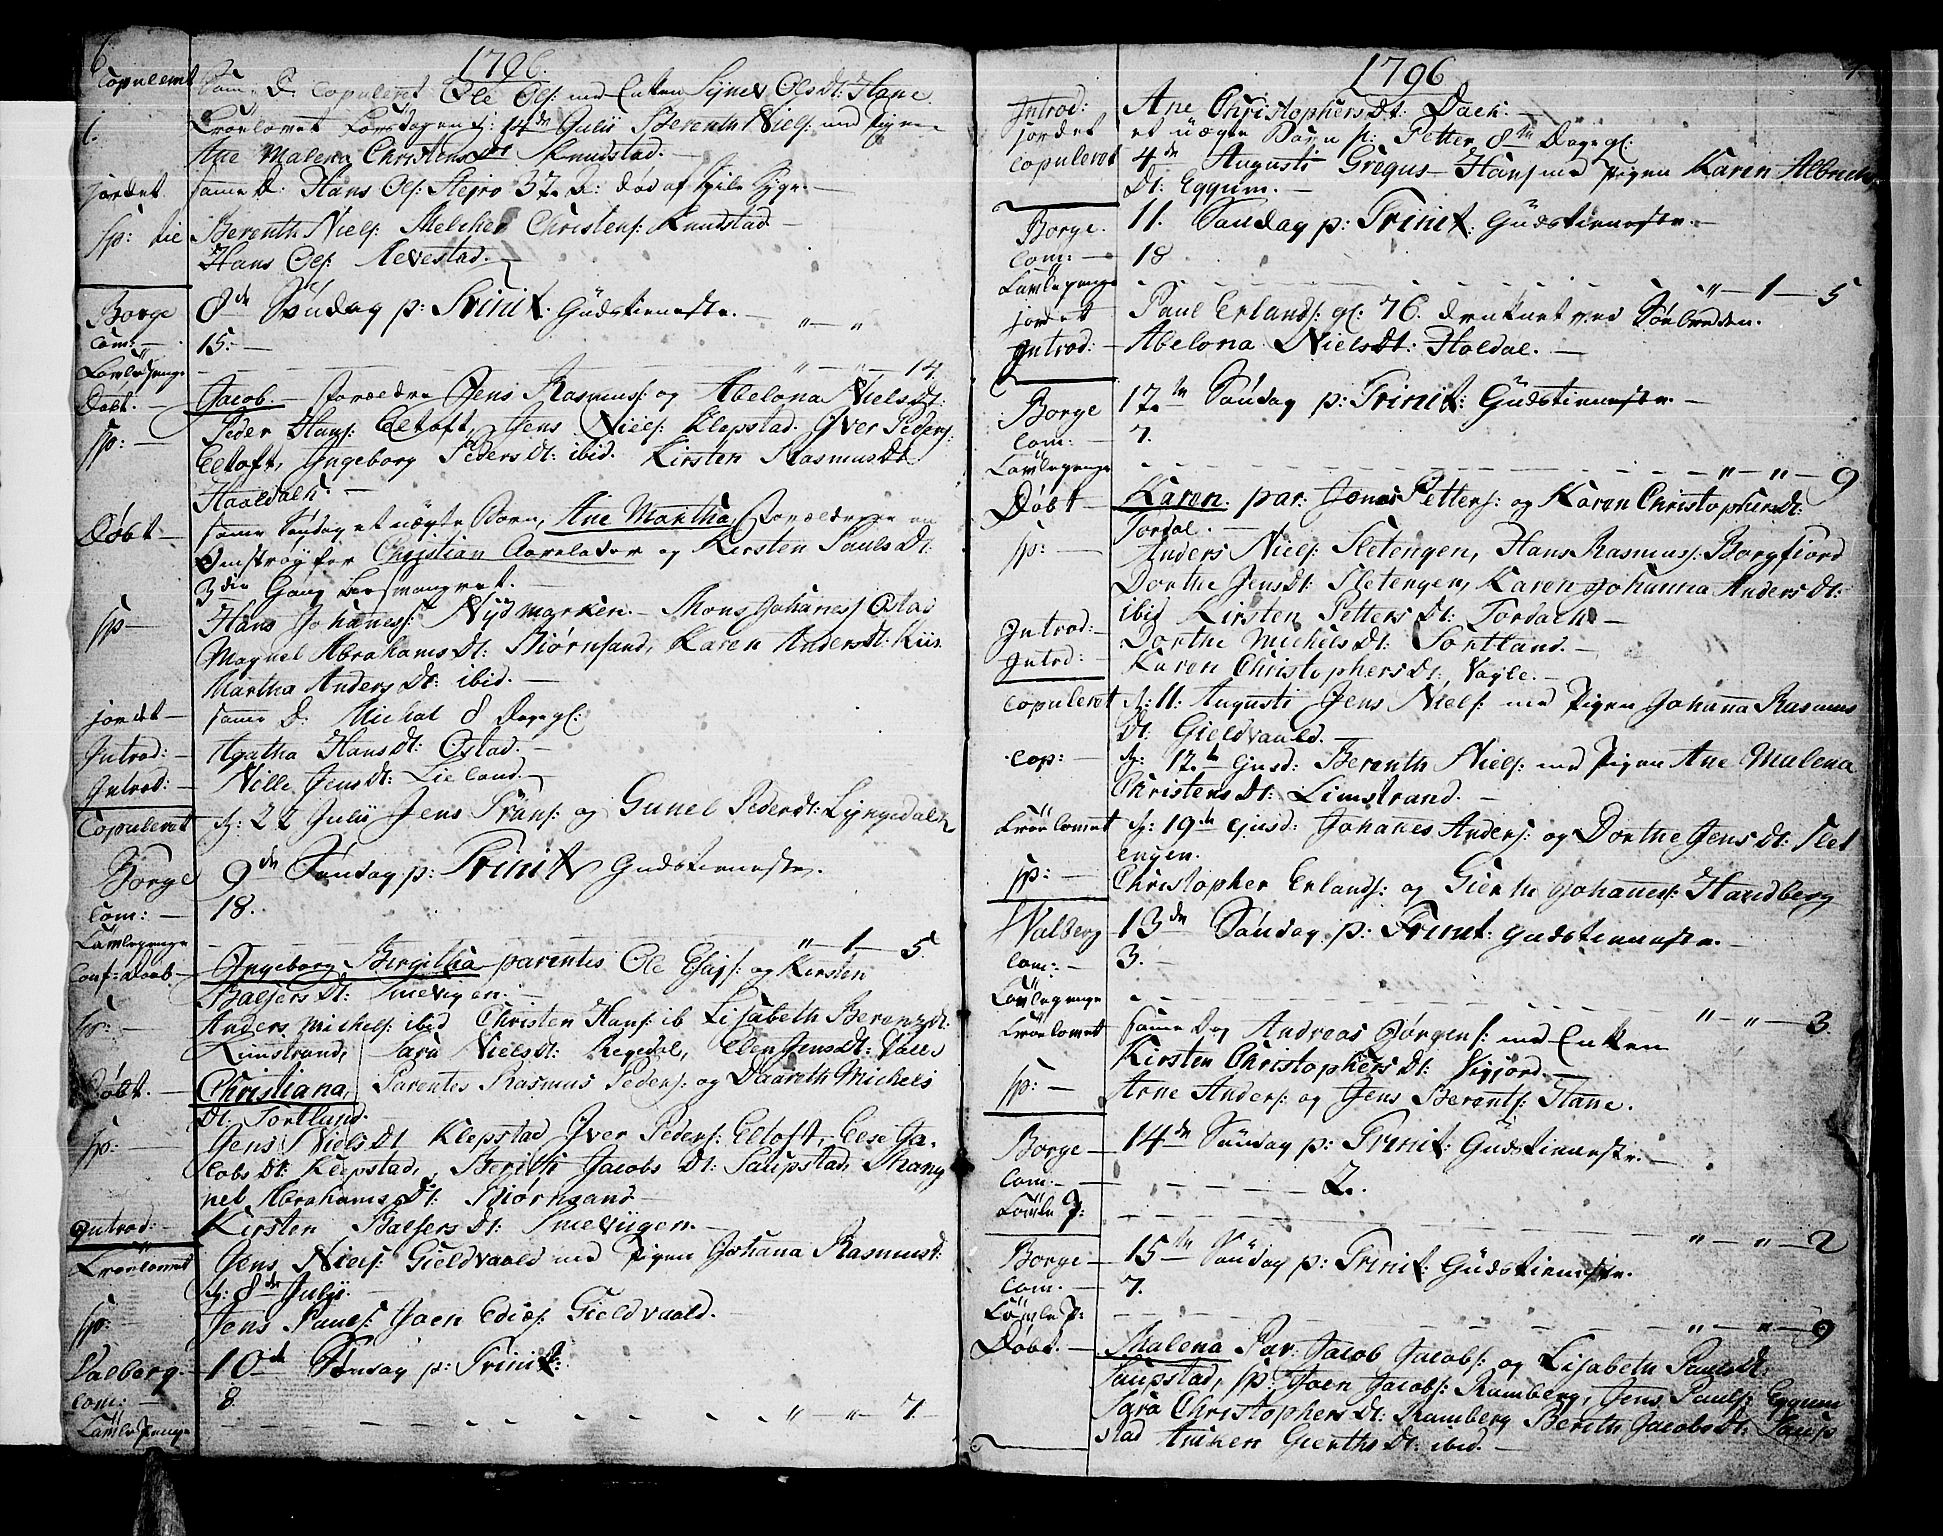 6.
1796.
Copuleret Sam: D. Copuleret Ole Ols: med Enken Signes Ols Dt: Hane.
Troelovet Torsdagen d: 14de Julii Berenth Niels: med Pigen
Ane Malena Christens Dt Knudstad.—
jordet samme D: Hans Ols: Stejro 37. A: død af
Sp: til Berenth Niels: Melcher Christens: Knudstad—
Hans Ols: Aevestad.—
Borge 8de Søndag p: Trinit: Gudstieneste.—
Com:— 15.—
Tavlepenge — — — — " — " — 14.
Døbt.— Jacob.— Forældre Jens Rasmus: og Abelona Niels Dt:
Sp:— Peder Hans: Eltoft, Jens Niels: Klepstad. Iver Peders:
Eltoft, Ingeborg Peders Dt: ibid. Kirsten Rasmus Dt
Haaldahl.—
Døbt— samme Søndag et uægte Barn, Ane Martha, Forældrene en
Omstrøyfer Christian Aarelader og Kirsten Pauls Dt:
3die Gang besvangret.—
Sp— Hans Johanes: Nydmarken.— Mons Johanes: Ostad
Magnel Abrahams Dt: Biørnsand, Karen Anders Dt: Kiis
Martha Anders Dt: ibid.—
jordet— samme D: Michal 8 Dage gl:
Introd:— Agatha Hans Dt: Ostad.—
Introd:— Nille Jens Dt: Lieland.—
Copuleret d: 22 Julii Jens Frans: og Gunel Peder Dt: Lyngedahl
Borge 9de Søndag p: Trinit Gudstieneste.
Com:— 18.
Tavlepenge — — — " — 1 — 5.
Conf: Daab— Ingeborg Bergitha parentes Ole Esais: og Kirsten
Balsers Dt: Smevigen.—
Sp:— Anders Michels: ibid Christen Hans: ib Lisabeth Berenz dt:
Limstrand, Sara Niels Dt: Regedal, Elen Jens Dt: Valle
Døbt.— Christiana, Parentes Rasmus Peders: og Daareth Michels
Dt: Tortlund.—
Sp:— Jens Niels Dt Klepstad Iver Peders: Eltoft, Else Ja-
cobs Dt: Klepstad, Berith Jacobs Dt: Saupstad, Mang
nel Abrahams Dt: Biørnsand—
Introd:— Kirsten Balsers Dt: Smeviigen.—
Troelovet Jens Niels: Gieldvaald med Pigen Johana Rasmus d:
d: 8de Julii.
Sp:— Jens Pauls: Joen Edies: Gieldvaald.—
Valberg. 10de Søndag p: Trinit:
Com:— 8.
Tavle Penge — — — " — " — 7.—
1796
Introd: Ane Christophers Dt: Dach.—
jordet et uægte Barn n: Petter 8te Dage gl:
copuleret 4de Augusti Gregus Hans: med Pigen Karen Albrichs
Dt: Eggum.—
Borge. 11. Søndag p: Trinit: Gudstieneste.—
Com:— 18
Tavlepenge — — — " — 1 — 5
jordet Paul Erlands: gl: 76. druknet ved Søebreden.
Introd:— Abelona Niels Dt: Holdal.—
Borge 12.te Søndag p: Trinit: Gudstieneste.—
Com:— 7.
Tavlepenge — — — " — " — 9
Døbt— Karen. par: Jonas Petters: og Karen Christophers Dt:
Tordal.—
Sp:— Anders Niels: Sletengen, Hans Rasmus: Borgfiord
Dorthe Jens Dt: Sletengen, Karen Johanna Anders Dt:
ibid Kirsten Petters Dt: Tordahl—
Introd:— Dorthe Michels Dt: Tortland.—
Introd:— Karen Christophers Dt: Vagle.—
copuleret d: 11 Augusti Jens Niels: med Pigen Johana Rasmus
Dt: Gieldvaald.—
Cop:— d: 12te ejusd: Berenth Niels: med Pigen Ane Malena
Christens Dt: Limstrand.—
Troelovet d: 19de ejusd: Johanes Anders: og Dorthe Jens Dt: Slet
engen.
Sp:— Christopher Erlands: og Gierth Johanes: Handberg
Walberg 13de Søndag p: Trinit: Gudstieneste.—
Com:— 3.—
Tavlepenge — — — " — " — 3.
Troelovet samme Dag Andreas Jørgens: med Enken
Kirsten Christophers Dt: Vigjord.—
Sp:— Arne Anders: og Jens Berents: Hane.
Borge— 14de Søndag p: Trinit: Gudstieneste.—
Com:— — — — 2.
Tavle P: — — — " — " — 2
Borge— 15te Søndag p: Trinit: Gudstieneste.
Com.— 7.
Tavle P: — — — " — " — 9
Døbt.— Malena Par: Jacob Jacobs: og Lisabeth Pauls Dt:
Saupstad, Sp: Joen Jacobs: Ramberg, Jens Pauls: Eggum
Sara Christophers Dt: Ramberg Berith Jacobs Dt: Saup
stad Aniken Gierths Dt: ibid.—